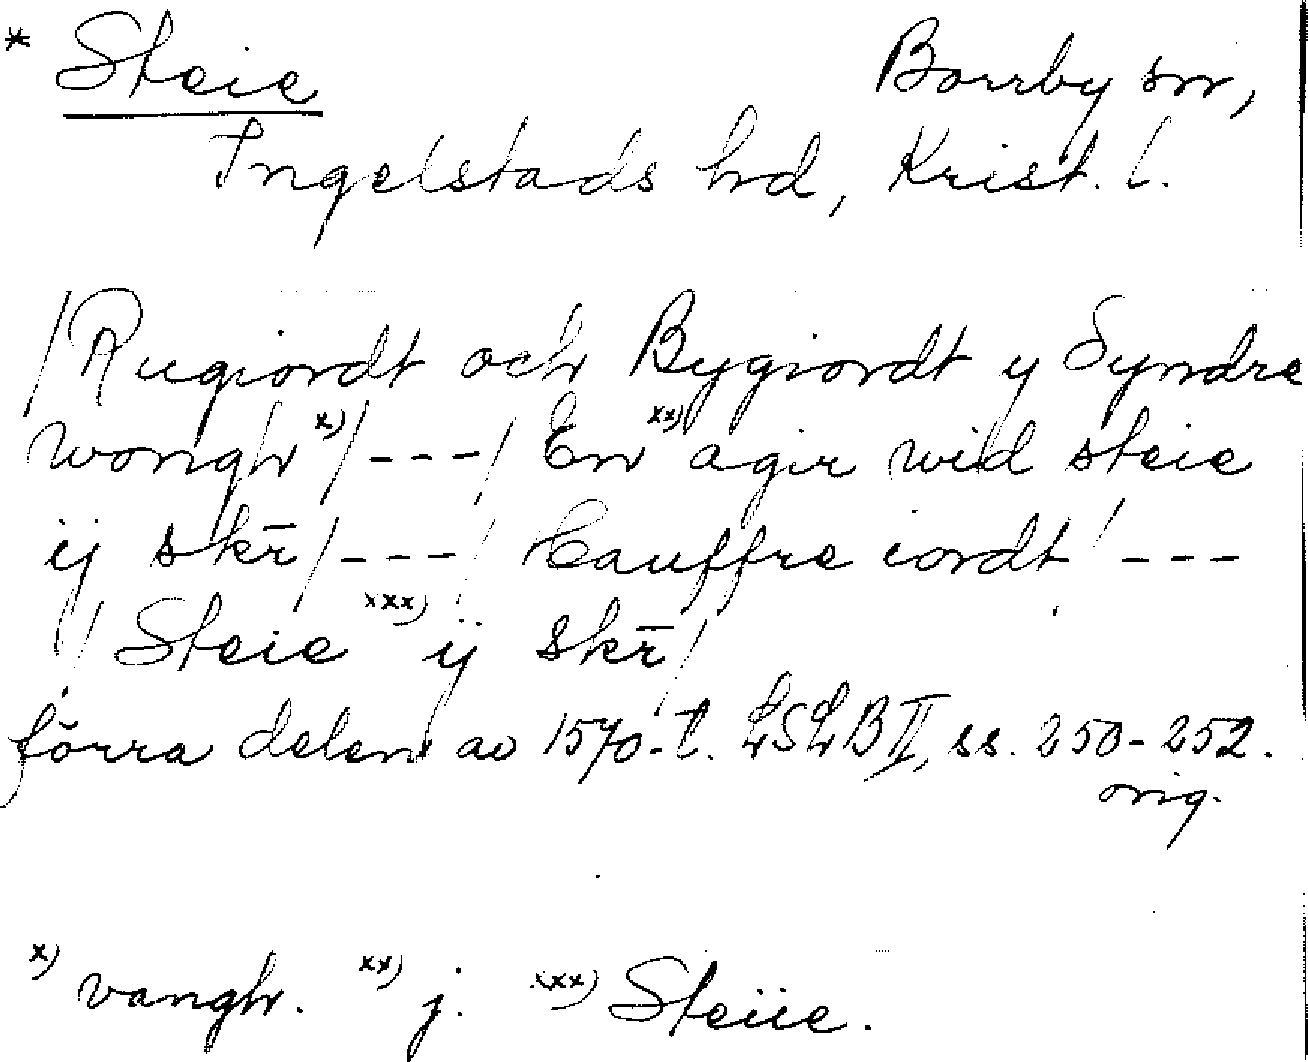 * Steie Borrby sn,
Ingelstads hd, Krist. l.
/Rugiordt och Bygiordt y Syndre
wongh x)/---/ En xx) agir wid steie
ij skr̄/---/ Cauffre iordt/---
/Steie xxx) ij skr̄/
förra delen av 1570-t. LSLB II, ss. 250-252.
orig.
x) vangh. xx) j. xxx) Steiie.